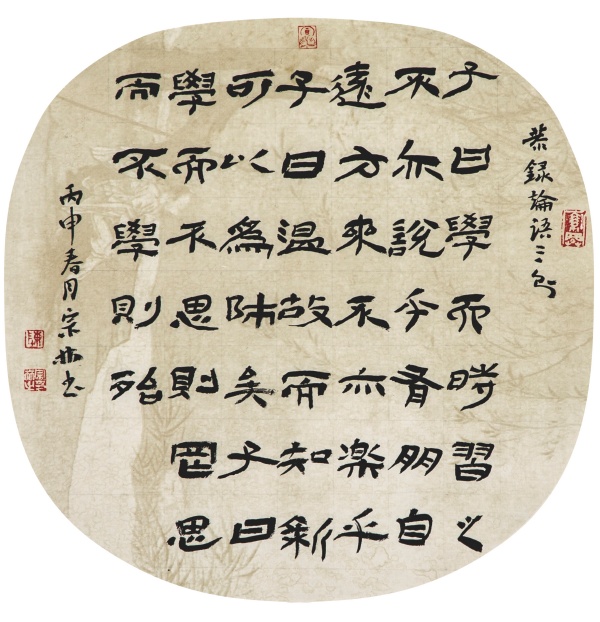 恭録論语三则
子曰學而時習之
不亦說乎有朋自
遠方來不亦樂乎
子曰温故而知新
可以為師矣子曰
學而不思則罔思
而不學則殆
丙申春月宗书